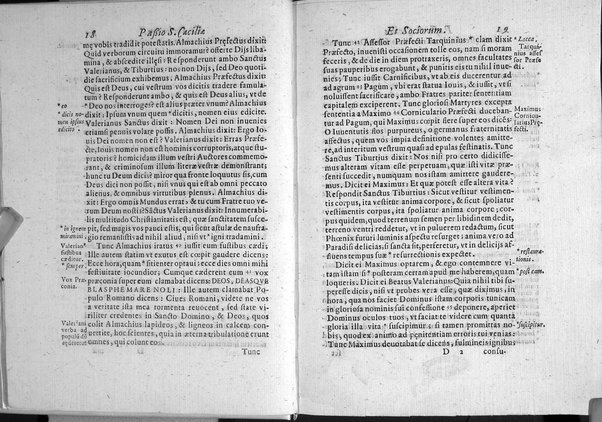 18 Passio S. Cæciliæ
me vobis tradidit potestatis. Almachius Præfectus dixit:
Quid verborum circuitu immoramur? offerte Dijs libamina,
& abscedite illęsi: Responderunt ambo Sanctus
Valerianus, & Tiburtius: non Dijs, sed Deo quotidie
sacrificium exhibemus. Almachius Præfectus dixit:
Quis est Deus, cui vestrum vos dicitis tradere famulatum?
Responderunt ambo, & quis est Deus alius, vt de
Deo nos interroges? est alius præter vnum? Almachius
dixit: Ipsum vnum quem dicitis, nomen eius edicite.
Valerianus Sanctus dixit: Nomen Dei non inuenies
etiamsi pennis volare possis. Almachius dixit: Ergo Iouis
Dei nomen non est? Valerianus dixit: Erras Præfecte,
Iouis nomen non est hominis corruptoris, atque stupratoris?
homicidam illum vestri Auctores commemorant,
& criminosum illum literæ vestræ demonstrant;
hunc tu Deum dicis? miror qua fronte loquutus sis, cum
Deus dici non possit, nisi vnus qui est ab omni peccato
alienus, & omnibus virtutibus plenus. Almachius dixit:
Ergo omnis Mundus errat, & tu cum Fratre tuo verum
Deum nosti? Sãctus Valerianus dixit: Innumerabilis
multitudo Christianitatis est, quæ sanctitatem suscepit,
sed magis vos pauci estis, qui sicut astulæ de naufragio
remansistis ad nihil aliud, nisi vt igni tradamini.
Tunc Almachius iratus iussit eum fustibus cædi:
Ille autem statim vt extẽsus est cœpit gaudere dicens:
Ecce hora, quam sitienter optaui: ecce dies omni mihi
festiuitate iocundior; Cumque cæderent eum vox
præconia super eum clamabat dicens: DEOS, DEASQVE
BLASPHEMARE NOLI: Ille autem clamabat Populo
Romano dicens: Ciues Romani, videte ne vos
a veritate ista mea tormenta reuocent, sed state viriliter
credentes in Sancto Domino, & Deos, quos
colit Almachius lapideos, & ligneos in calcem conuertite,
hoc scientes, quia in æterna tribulatione erunt
omnes, qui colunt eos.
Tunc
eo
dicis nomen
edicito.
in ignem
Valerianus
fustibus
cæditur.
semper
Vox Præconia.
Valeriani
verba ad
populum
dicentis
Et Sociorum. 19
Tunc Assessor Præfecti Tarquinius clam dixit
Præfecto, inuenisti occasionem tolle eos, nam si moram
feceris, & de die in diem protraxeris, omnes facultates
suas pauperibus erogabunt, & punitis eis tu nihil inuenies;
Tunc iussit Carnificibus, vt ab eis ducerentur ad
ad agrum Pagum, vbi erat statua Iouis, & iussit, vt si
noluissent sacrificare, ambo Fratres pariter sententiam
capitalem exciperent. Tunc gloriosi Martyres excepta
sententia a Maximo Corniculario Præfecti ducebantur
ad Pagum, qui Maximus cœpit flere super eos dicẽs:
O Iuuentutis flos purpureus, o germanus fraternitatis
affectus, quem vos impia definitione vultis amittere,
ad interitum vestrum quasi ad epulas festinatis. Tunc
Sanctus Tiburtius dixit: Nos nisi pro certo didicissemus
alteram vitam esse perpetuam, quæ isti vitæ præsenti
succedit, nunquam nos istam amittere gauderemus.
Dicit ei Maximus: Et quæ potest esse altera vita?
Respondit Sanctus Tiburtius: Sicut vestitur vestimentis
corpus, ita vestitur anima corpore, & sicut spoliatur
vestimentis corpus, ita spoliatur anima corpore, &
corpus quidem, quod terrenum semen per libidinem dedit,
terreno ventri reddetur, vt in puluerem redactum, sicut
Phœnix futuri luminis aspectu resurgat: anima vero ad
Paradisi delicias, si sancta sit, perferetur, vt in delicijs affluens
tempus suæ resurrectionis expectet.
Dicit ei Maximus optarem, & ego contemnere vitam
istam si posteram certam apud me haberem, quam
loqueris. Dicit ei Beatus Valerianus: Quia nihil tibi superesse
dicis, nisi vt probes vera esse, quæ diximus, in
hora, qua nos faciet Dominus istam corporis tunicam
in gloriosa nominis sui confessione deponere, aperiet
Dominus oculos tuos, vt faciat te videre cum quanta
gloria illa vita suscipimur: si tamen promittas nobis,
quod ex animo ad pœnitentiam erroris tui venias:
Tunc Maximus deuotabat se dicens, fulmineis ignibus
D 2 consu-
Tarquinius
assessor
Præfecto
Maximus
Cornicularius
Præfecti.
restaurationem.
post eam.
suscipitur.